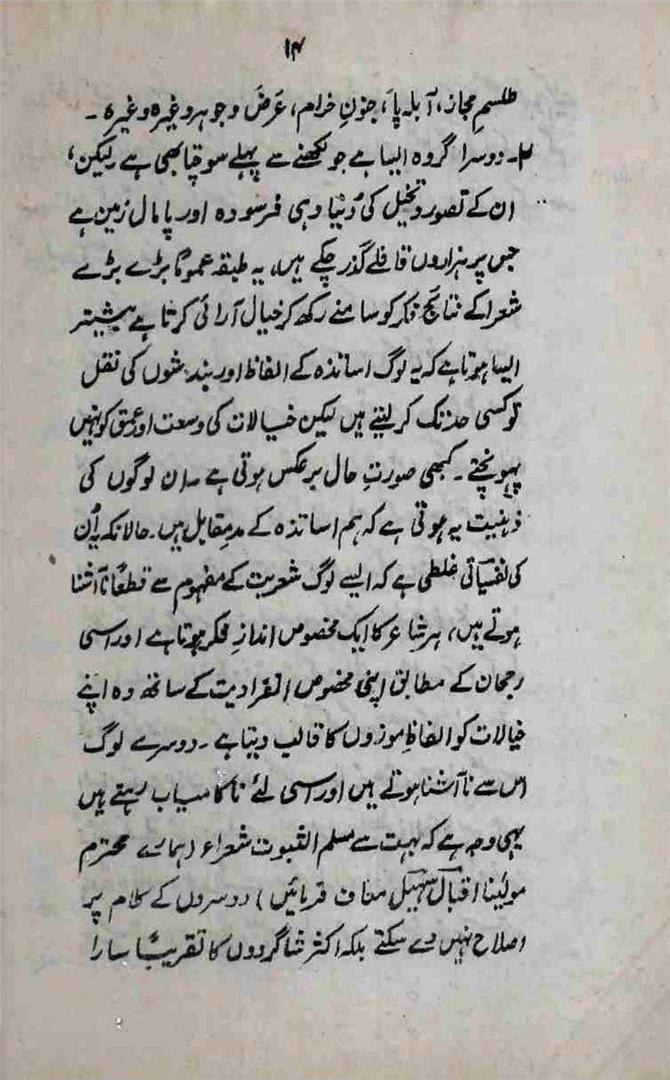 ۱۴
طلسمِ مجاز، آبلہ پَا، جنونِ خرام، عَرَض وجوہر وغیرہ وغیرہ ۔
۲۔ دوسرا گروہ ایسا ہے جو لکھنے سے پہلے سوچتا بھی ہے لیکن،
ان کے تصور وتخیل کی دُنیا وہی فرسودہ اور پامال زمین ہے
جس پر ہزاروں قافلے گذر چکے ہیں، یہ طبقہ عموماً بڑے بڑے
شعرا کے نتائج فکر کو سامنے رکھ کر خیال آرائی کرتا ہے بیشتر
ایسا ہوتا ہے کہ یہ لوگ اساتذہ کے الفاظ اور بندشوں کی نقل
تو کسی حد تک کر لیتے ہیں لیکن خیالات کی وسعت اور عمق کو نہیں
پہونچتے ۔ کبھی صورتِ حال برعکس ہوتی ہے ۔ ان لوگوں کی
ذہنیت یہ ہوتی ہے کہ ہم اساتذہ کے مدِمقابل ہیں ۔ حالانکہ یہ اُن
کی نفسیاتی غلطی ہے کہ ایسے لوگ شعریت کے مفہوم سے قطعاً ناآشنا
ہوتے ہیں، ہر شاعر کا ایک مخصوص اندازِ فکر ہوتا ہے اور اسی
رجحان کے مطابق اپنی مخصوص انفرادیت کے ساتھ وہ اپنے
خیالات کو الفاظِ موزوں کا قالب دیتا ہے ۔ دوسرے لوگ
اس سے ناآشنا ہوتے ہیں اور اسی لئے ناکامیاب رہتے ہیں
یہی وجہ ہے کہ بہت سے مسلم الثبوت شعراء (ہمارے محترم
مولینا اقبال سہیل معاف فرمائیں) دوسروں کے کلام پر
اصلاح نہیں دے سکتے بلکہ اکثر شاگردوں کا تقریباً سارا